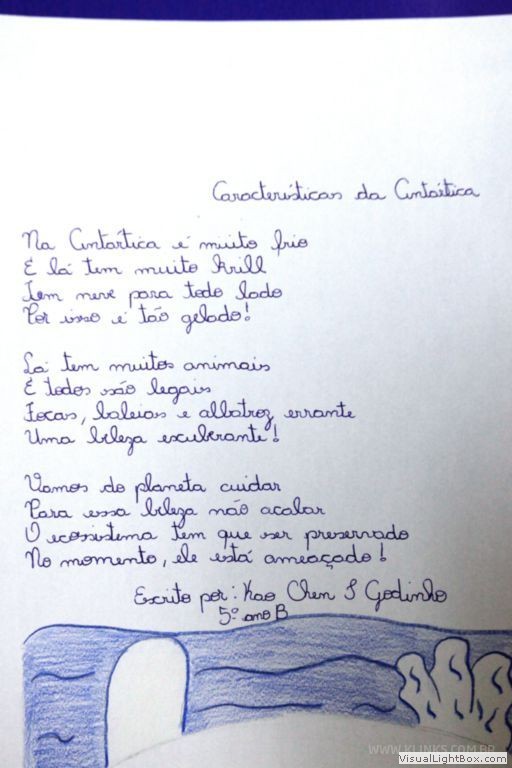 Características da Antártica
Na Antártica é muito frio
E lá tem muito Krill
Tem neve para todo lado
Por isso é tão gelado!
Lá tem muitos animais
E todos são legais
Focas, baleias e albatroz errante
Uma beleza exuberante!
Vamos do planeta cuidar
Para essa beleza não acabar
O ecossistema tem que ser preservado
No momento, ele está ameaçado!
Escrito por: Kao Chen S Godinho
5º ano B
WWW.KLINKS.COM.BR
VisualLightBox.com